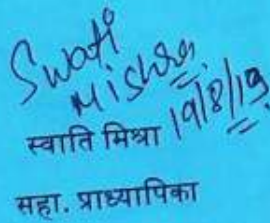 Swati
Mishra
19/8/19
स्वाति मिश्रा
सहा. प्राध्यापिका